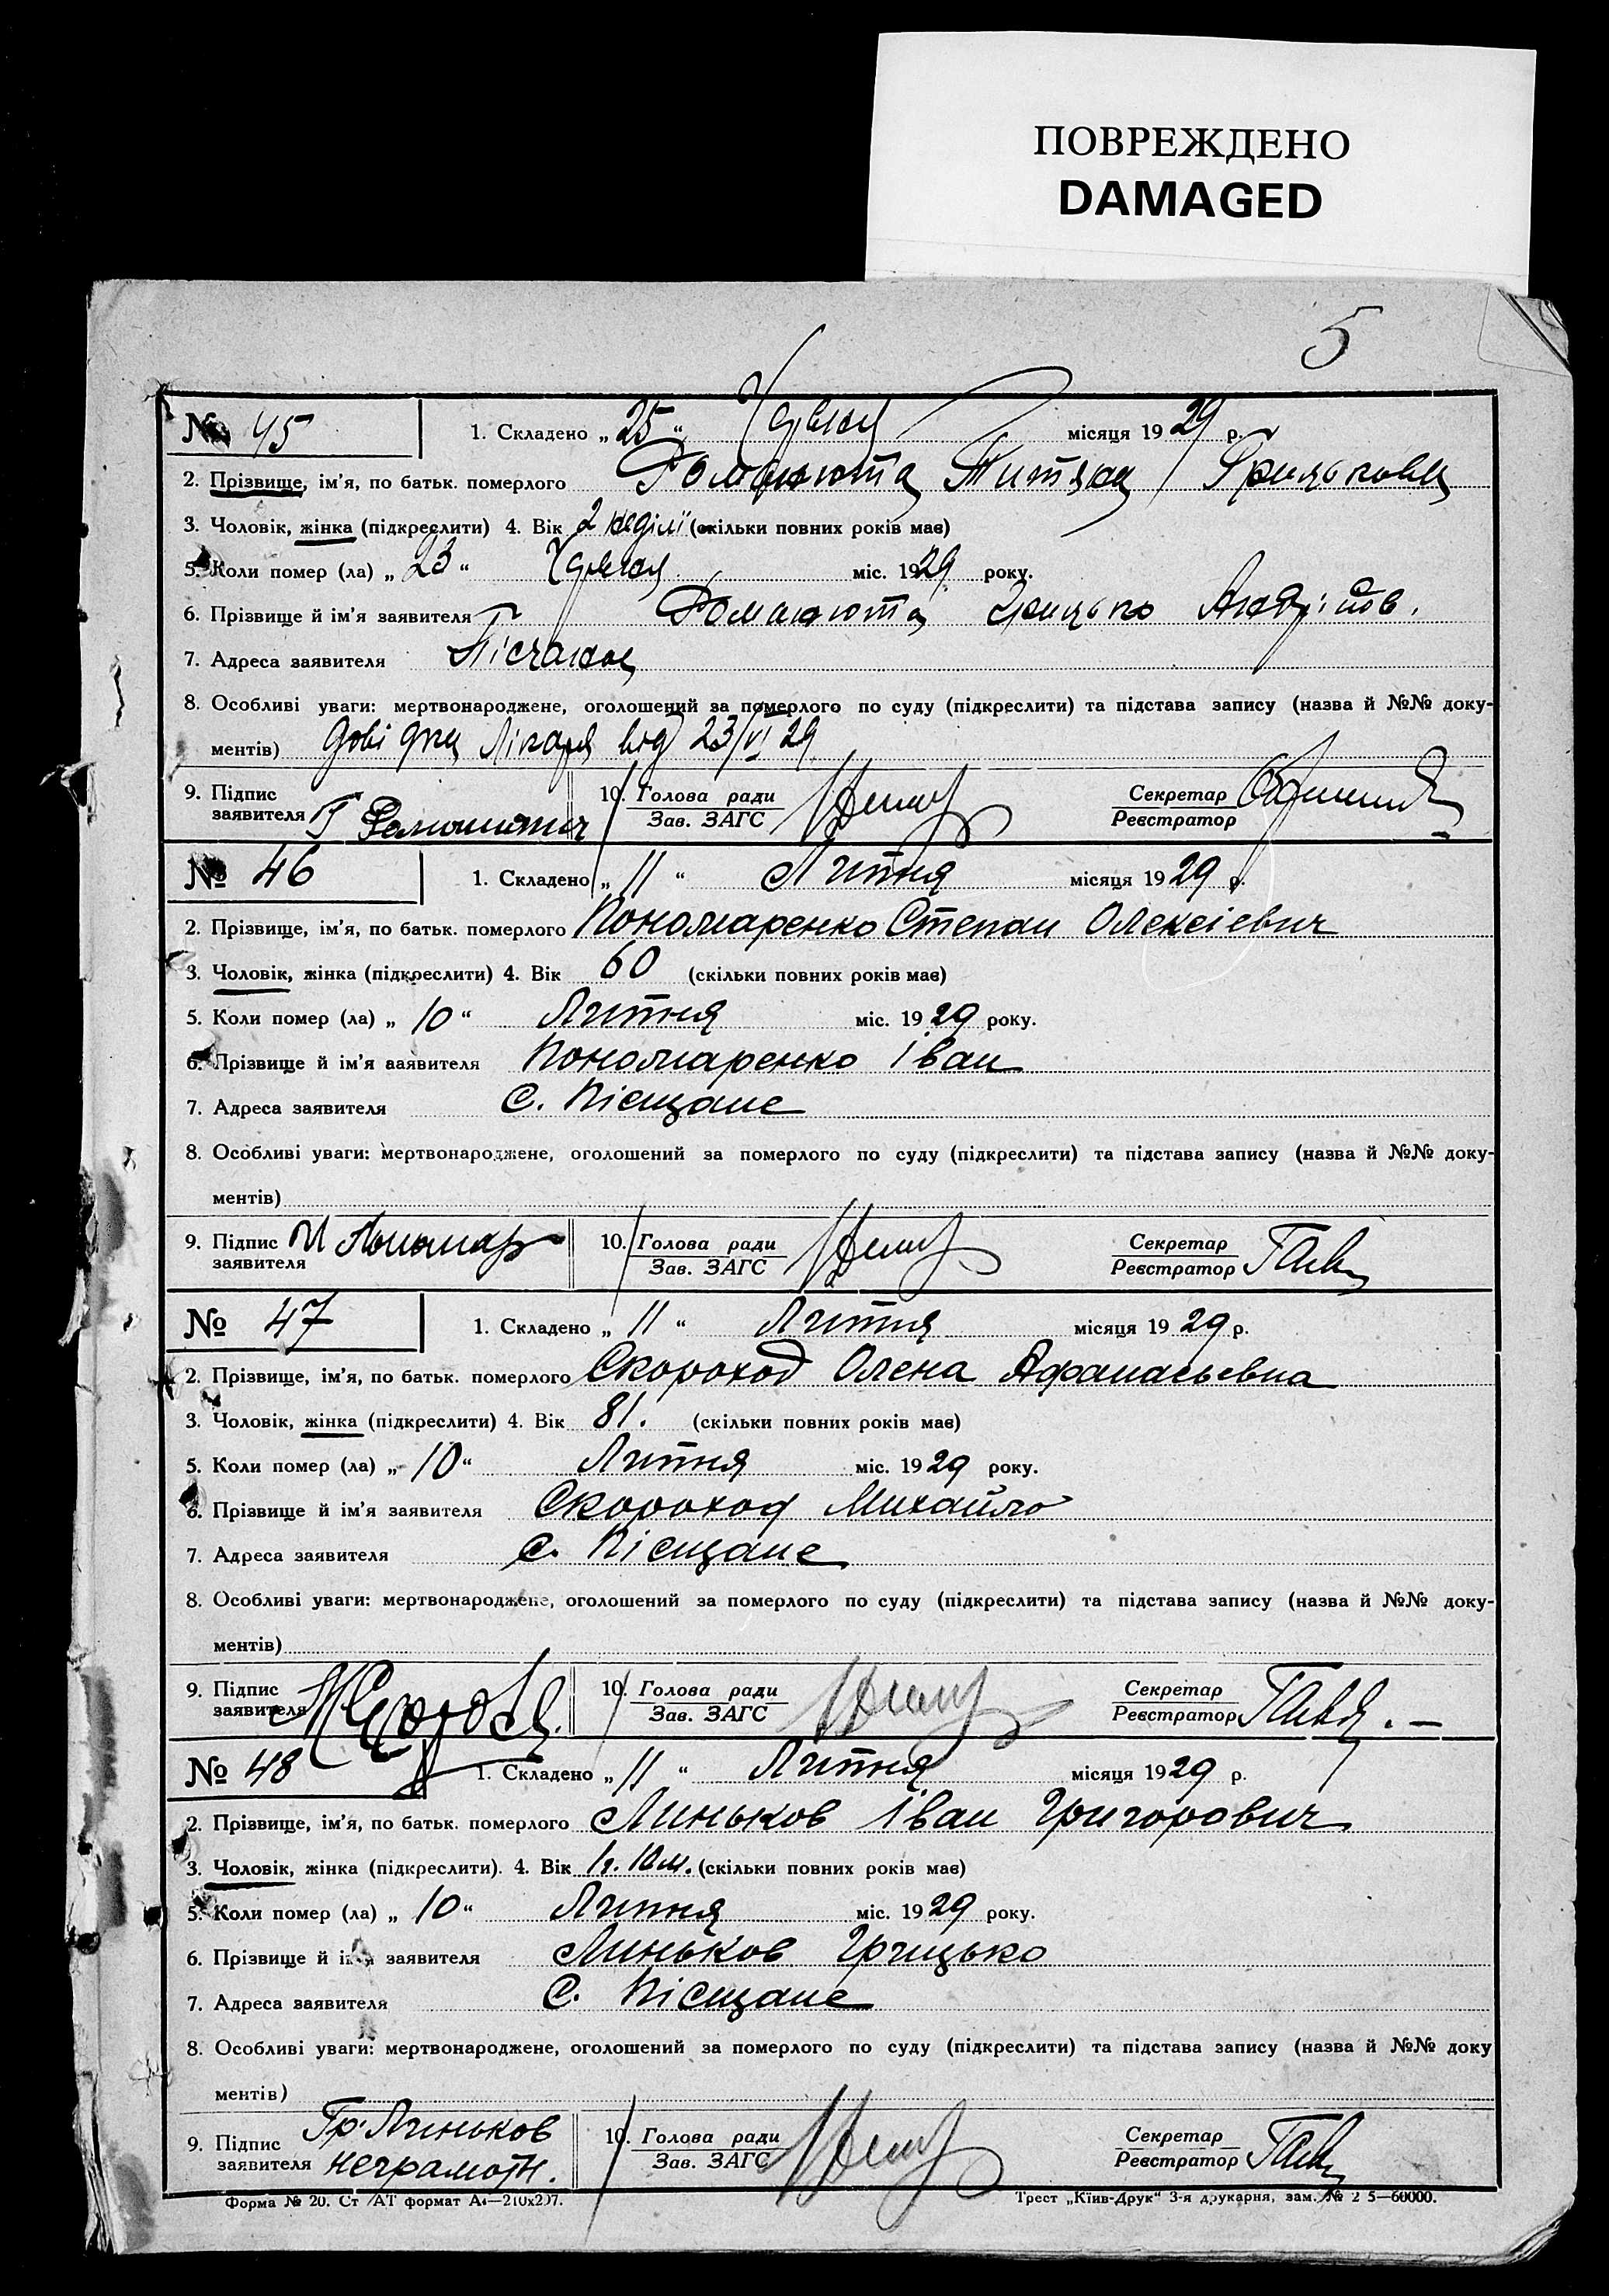 ПОВРЕЖДЕНО
DAMAGED
5
№ 45 1. Складено „ 25 “ Червня місяця 1929 р.
2. Прізвище, ім’я, по батьк. померлого Романюта Грицькова
3. Чоловік, жінка (підкреслити) 4. Вік 2 неділі (скільки повних років має)
5. Коли помер (ла) „ 23 “ Червня міс. 1929 року.
6. Прізвище й ім’я заявителя Романюта Грицько Андрійов.
7. Адреса заявителя Пісчаное
8. Особливі уваги: мертвонароджене, оголошений за померлого по суду (підкреслити) та підстава запису (назва й №№ доку-
ментів) Довідка Лікаря від 23/VI 29
9. Підпис заявителя Г 10. Голова ради Зав. ЗАГС Секретар Реєстратор
№ 46 1. Складено „ 11 “ Липня місяця 1929 р.
2. Прізвище, ім’я, по батьк. померлого Пономаренко Степан Олексієвич
3. Чоловік, жінка (підкреслити) 4. Вік 60 (скільки повних років має)
5. Коли помер (ла) „ 10 “ Липня міс. 1929 року.
6. Прізвище й ім’я заявителя Пономаренко Іван
7. Адреса заявителя С. Піещане
8. Особливі уваги: мертвонароджене, оголошений за померлого по суду (підкреслити) та підстава запису (назва й №№ доку-
ментів)
9. Підпис заявителя И Пономар 10. Голова ради Зав. ЗАГС Секретар Реєстратор
№ 47 1. Складено „ 11 “ Липня місяця 1929 р.
2. Прізвище, ім’я, по батьк. померлого Скороход Олена Афанасьевна
3. Чоловік, жінка (підкреслити) 4. Вік 81. (скільки повних років має)
5. Коли помер (ла) „ 10 “ Липня міс. 1929 року.
6. Прізвище й ім’я заявителя Скороход Михайло
7. Адреса заявителя С. Піещане
8. Особливі уваги: мертвонароджене, оголошений за померлого по суду (підкреслити) та підстава запису (назва й №№ доку-
ментів)
9. Підпис заявителя 10. Голова ради Зав. ЗАГС Секретар Реєстратор
№ 48 1. Складено „ 11 “ Липня місяця 1929 р.
2. Прізвище, ім’я, по батьк. померлого Линьков Іван Григорович
3. Чоловік, жінка (підкреслити). 4. Вік 1г. 10м. (скільки повних років має)
5. Коли помер (ла) „ 10 “ Липня міс. 1929 року.
6. Прізвище й ім’я заявителя Линьков Грицько
7. Адреса заявителя С. Піещане
8. Особливі уваги: мертвонароджене, оголошений за померлого по суду (підкреслити) та підстава запису (назва й №№ доку
ментів)
9. Підпис заявителя Гр. Линьков неграмотн. 10. Голова ради Зав. ЗАГС Секретар Реєстратор
Форма № 20. Ст АТ формат А4—210х297. Трест „Київ-Друк“ 3-я друкарня, зам. № 2 5—60000.